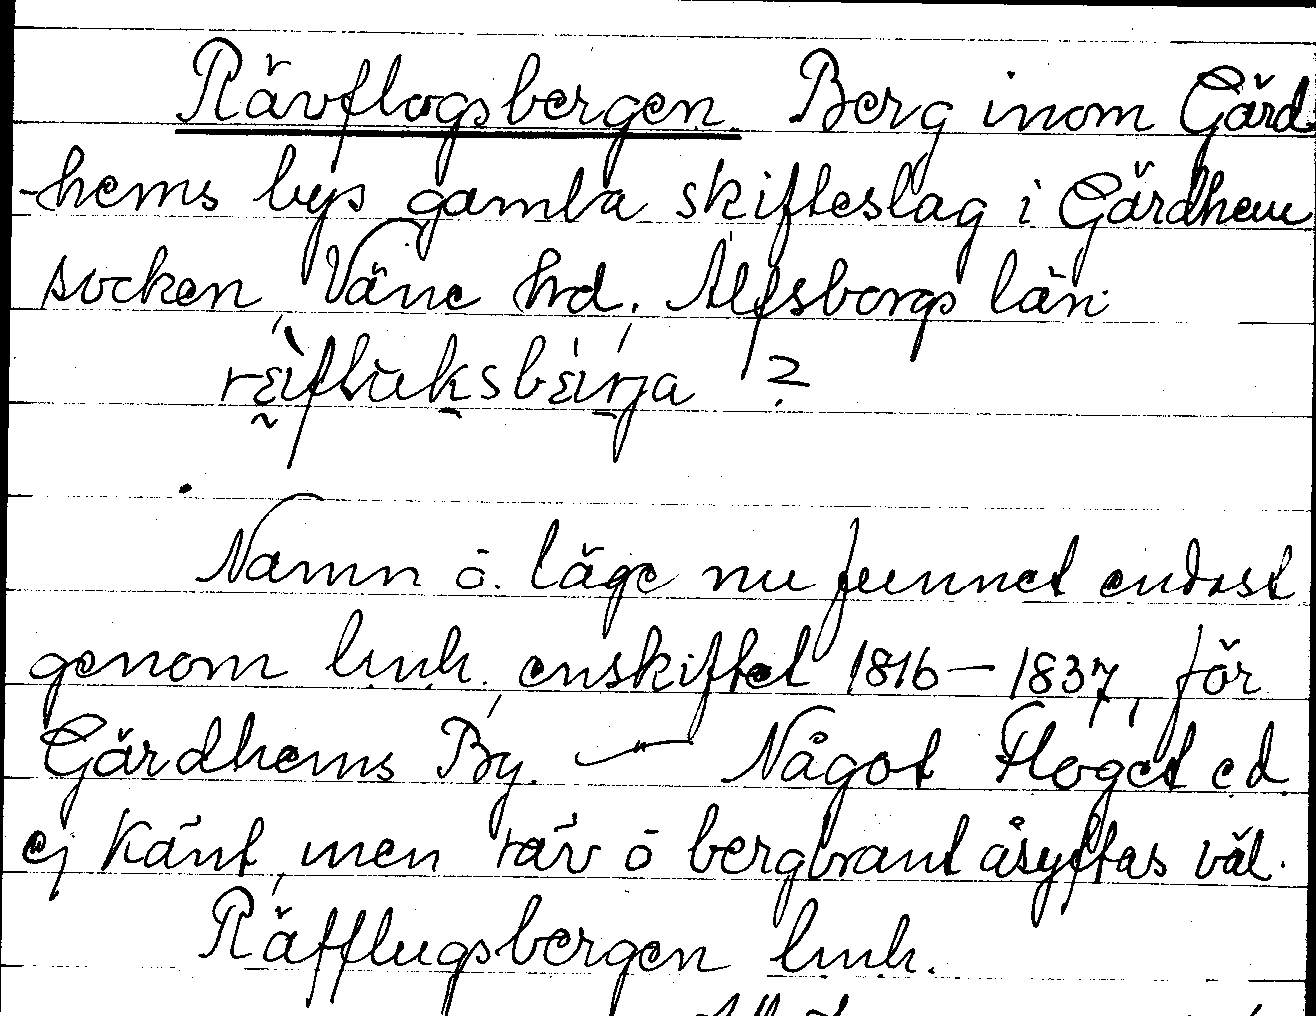 Rävflogsbergen. Berg inom Gärd
-hems bys gamla skifteslag i Gärdhem
socken, Väne hrd. Älfsborgs län.
?
Namn ö. läge nu funnet endast
genom lmh. enskiftet 1816–1837, för
Gärdhems By. — Något Floget ed.
ej känt, men räv ö bergbrant åsyftas väl.
Räfflugsbergen lmh.